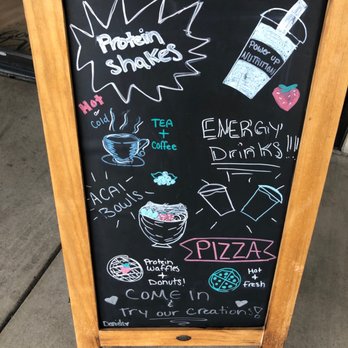 Protein
shakes
Power up
NUTRITION
Hot
or
Cold
TEA
+
Coffee
ENERGY
Drinks!!!
ACAI
BOWLS
PIZZA
Protein
Waffles
+
Donuts!
Hot
+
fresh
COME IN
&
Try our Creations!!